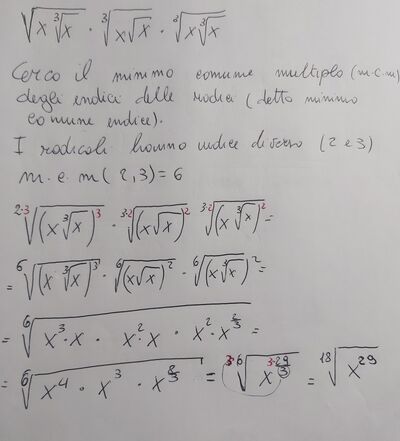 √(x ∛x) · ∛(x √x) · ∛(x ∛x)
Cerco il minimo comune multiplo (m.c.m)
degli indici delle radici (detto minimo
comune indice).
I radicali hanno indice diverso (2 e 3)
m.c.m (2,3) = 6
²·³√(x ∛x)³ · ³·²√(x √x)² · ³·²√(x ∛x)² =
= ⁶√(x ∛x)³ · ⁶√(x √x)² · ⁶√(x ∛x)² =
= ⁶√(x³·x · x²x · x²·x^(2/3)) =
= ⁶√(x⁴ · x³ · x^(8/3)) = ³·⁶√(x^(3·29/3)) = ¹⁸√(x²⁹)